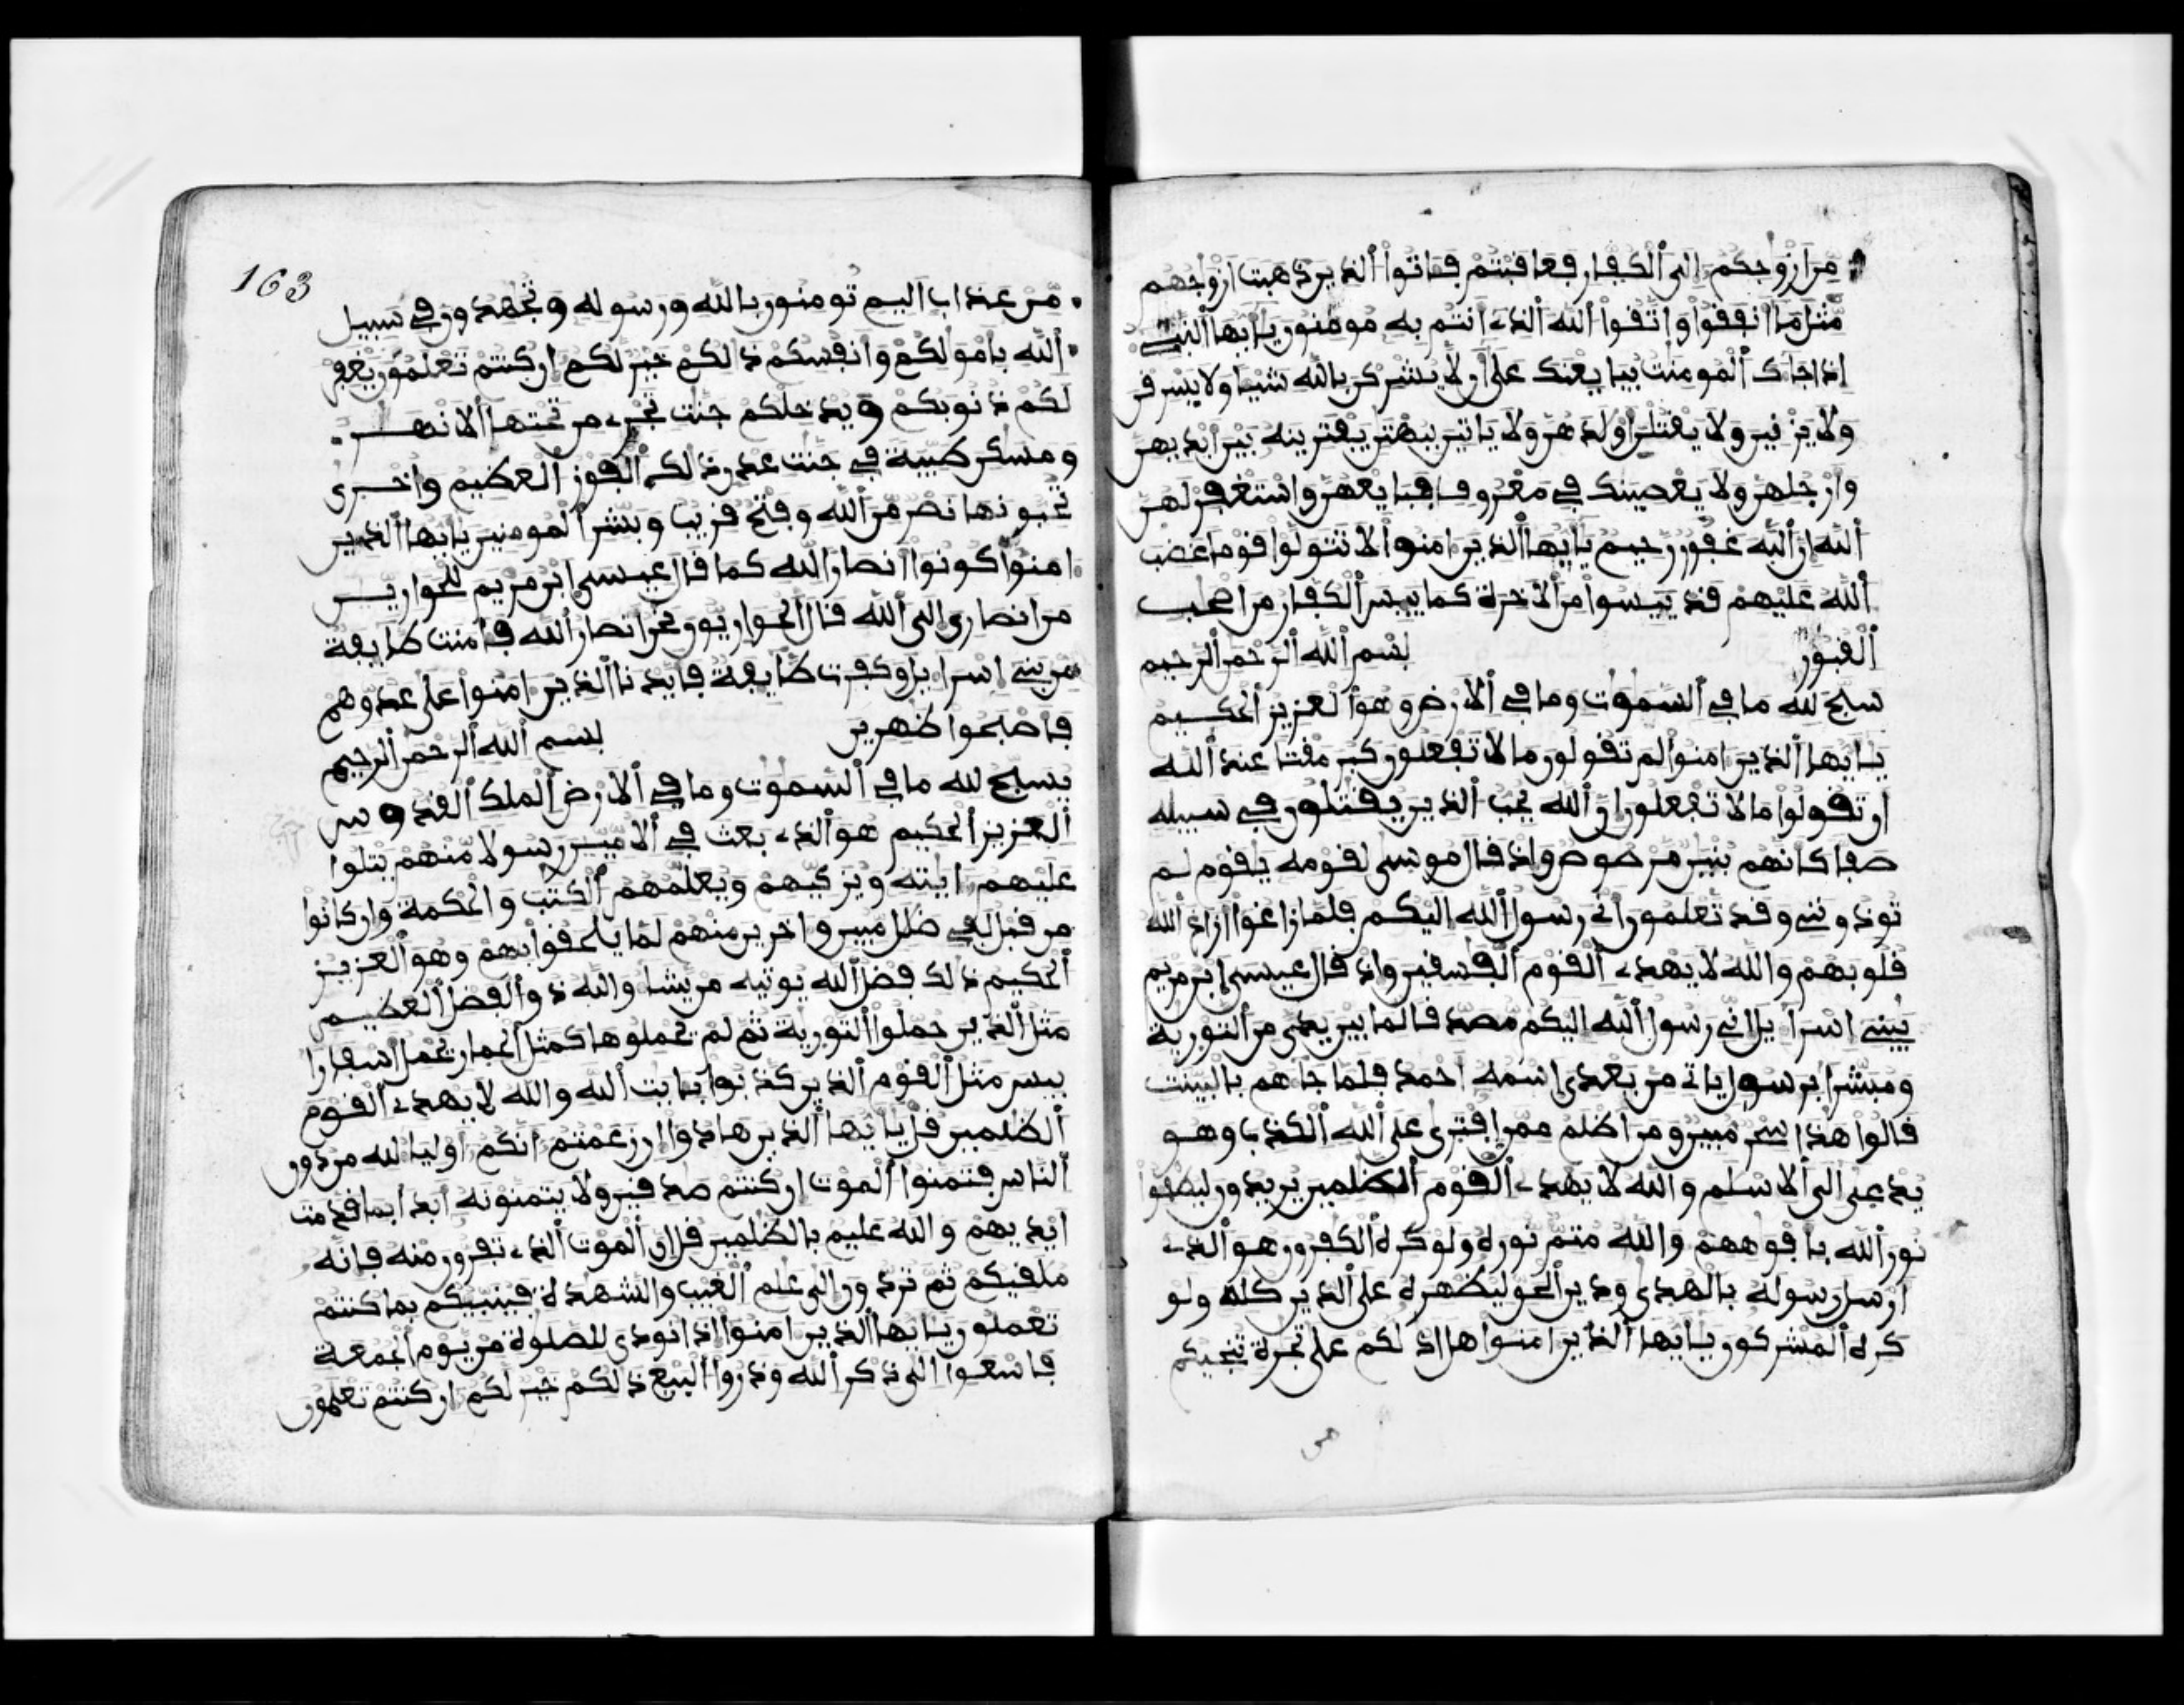 من ازوجكم الى الكفار فعاقبتم فاتوا الذين ذهبت ازوجهم
مثل ما انفقوا واتقوا الله الذے انتم به مومنون يايها النبے
اذا جاك المومنت يبايعنك على ان لا يشركن بالله شيا ولا يسرفن
ولا يزنين ولا يقتلن اولدهن ولا ياتين ببهتن يفترينه بين ايديهن
وارجلهن ولا يعصينك في معروف فبايعهن واستغفر لهن
الله ان الله غفور رحيم يايها الذين امنوا لا تتولوا قوما غضب
الله عليهم قد ييسوا من الاخرة كما ييس الكفار من اصحب
القبور بسم الله الرحمن الرحيم
سبح لله ما في السموت وما في الارض وهو العزيز الحكيم
يايها الذين امنوا لم تقولون ما لا تفعلون كبر مقتا عند الله
ان تقولوا ما لا تفعلون ان الله يحب الذين يقتلون في سبيله
صفا كانهم بنين مرصوص واذ قال موسى لقومه يقوم لم
توذوننے وقد تعلمون انے رسول الله اليكم فلما زاغوا ازاغ الله
قلوبهم والله لا يهدے القوم الفسقين واذ قال عيسى ابن مريم
يبنے اسرايل انے رسول الله اليكم مصدقا لما بين يدى من التورية
ومبشرا برسول ياتے من بعدى اسمه احمد فلما جاهم بالبينت
قالوا هذا سحر مبين ومن اظلم ممن افترى على الله الكذب وهو
يدعى الى الاسلم والله لا يهدے القوم الظلمين يريدون ليطفوا
نور الله بافوههم والله متم نوره ولو كره الكفرون هو الذے
ارسل رسوله بالهدى ودين الحق ليظهره على الدين كله ولو
كره المشركون يايها الذين امنوا هل ادلكم على تجرة تنجيكم
163
من عذاب اليم تومنون بالله ورسوله وتجهدون في سبيل
الله بامولكم وانفسكم ذالكم خير لكم ان كنتم تعلمون يغفر
لكم ذنوبكم ويدخلكم جنت تجرے من تحتها الانهر
ومسكن طيبة في جنت عدن ذلك الفوز العظيم واخرى
تحبونها نصر من الله وفتح قريب وبشر المومنين يايها الذين
امنوا كونوا انصار الله كما قال عيسى ابن مريم للحوارين
من انصارى الى الله قال الحواريون نحن انصار الله فامنت طايفة
من بنے اسرايل وكفرت طايفة فايدنا الذين امنوا على عدوهم
فاصبحوا ظهرين بسم الله الرحمن الرحيم
يسبح لله ما في السموت وما في الارض الملك القدوس
العزيز الحكيم هو الذے بعث في الامين رسولا منهم يتلوا
عليهم ايته ويزكيهم ويعلمهم الكتب والحكمة وان كانوا
من قبل لفي ضلل مبين واخرين منهم لما يلحقوا بهم وهو العزيز
الحكيم ذلك فضل الله يوتيه من يشا والله ذو الفضل العظيم
مثل الذين حملوا التورية ثم لم يحملوها كمثل الحمار يحمل اسفارا
بيس مثل القوم الذين كذبوا بايت الله والله لا يهدے القوم
الظلمين قل يايها الذين هادوا ان زعمتم انكم اوليا لله من دون
الناس فتمنوا الموت ان كنتم صدقين ولا يتمنونه ابدا بما قدمت
ايديهم والله عليم بالظلمين قل ان الموت الذے تفرون منه فانه
ملقيكم ثم تردون الى علم الغيب والشهدة فينبيكم بما كنتم
تعملون يايها الذين امنوا اذا نودى للصلوة من يوم الجمعة
فاسعوا الى ذكر الله وذروا البيع ذلكم خير لكم ان كنتم تعلمون